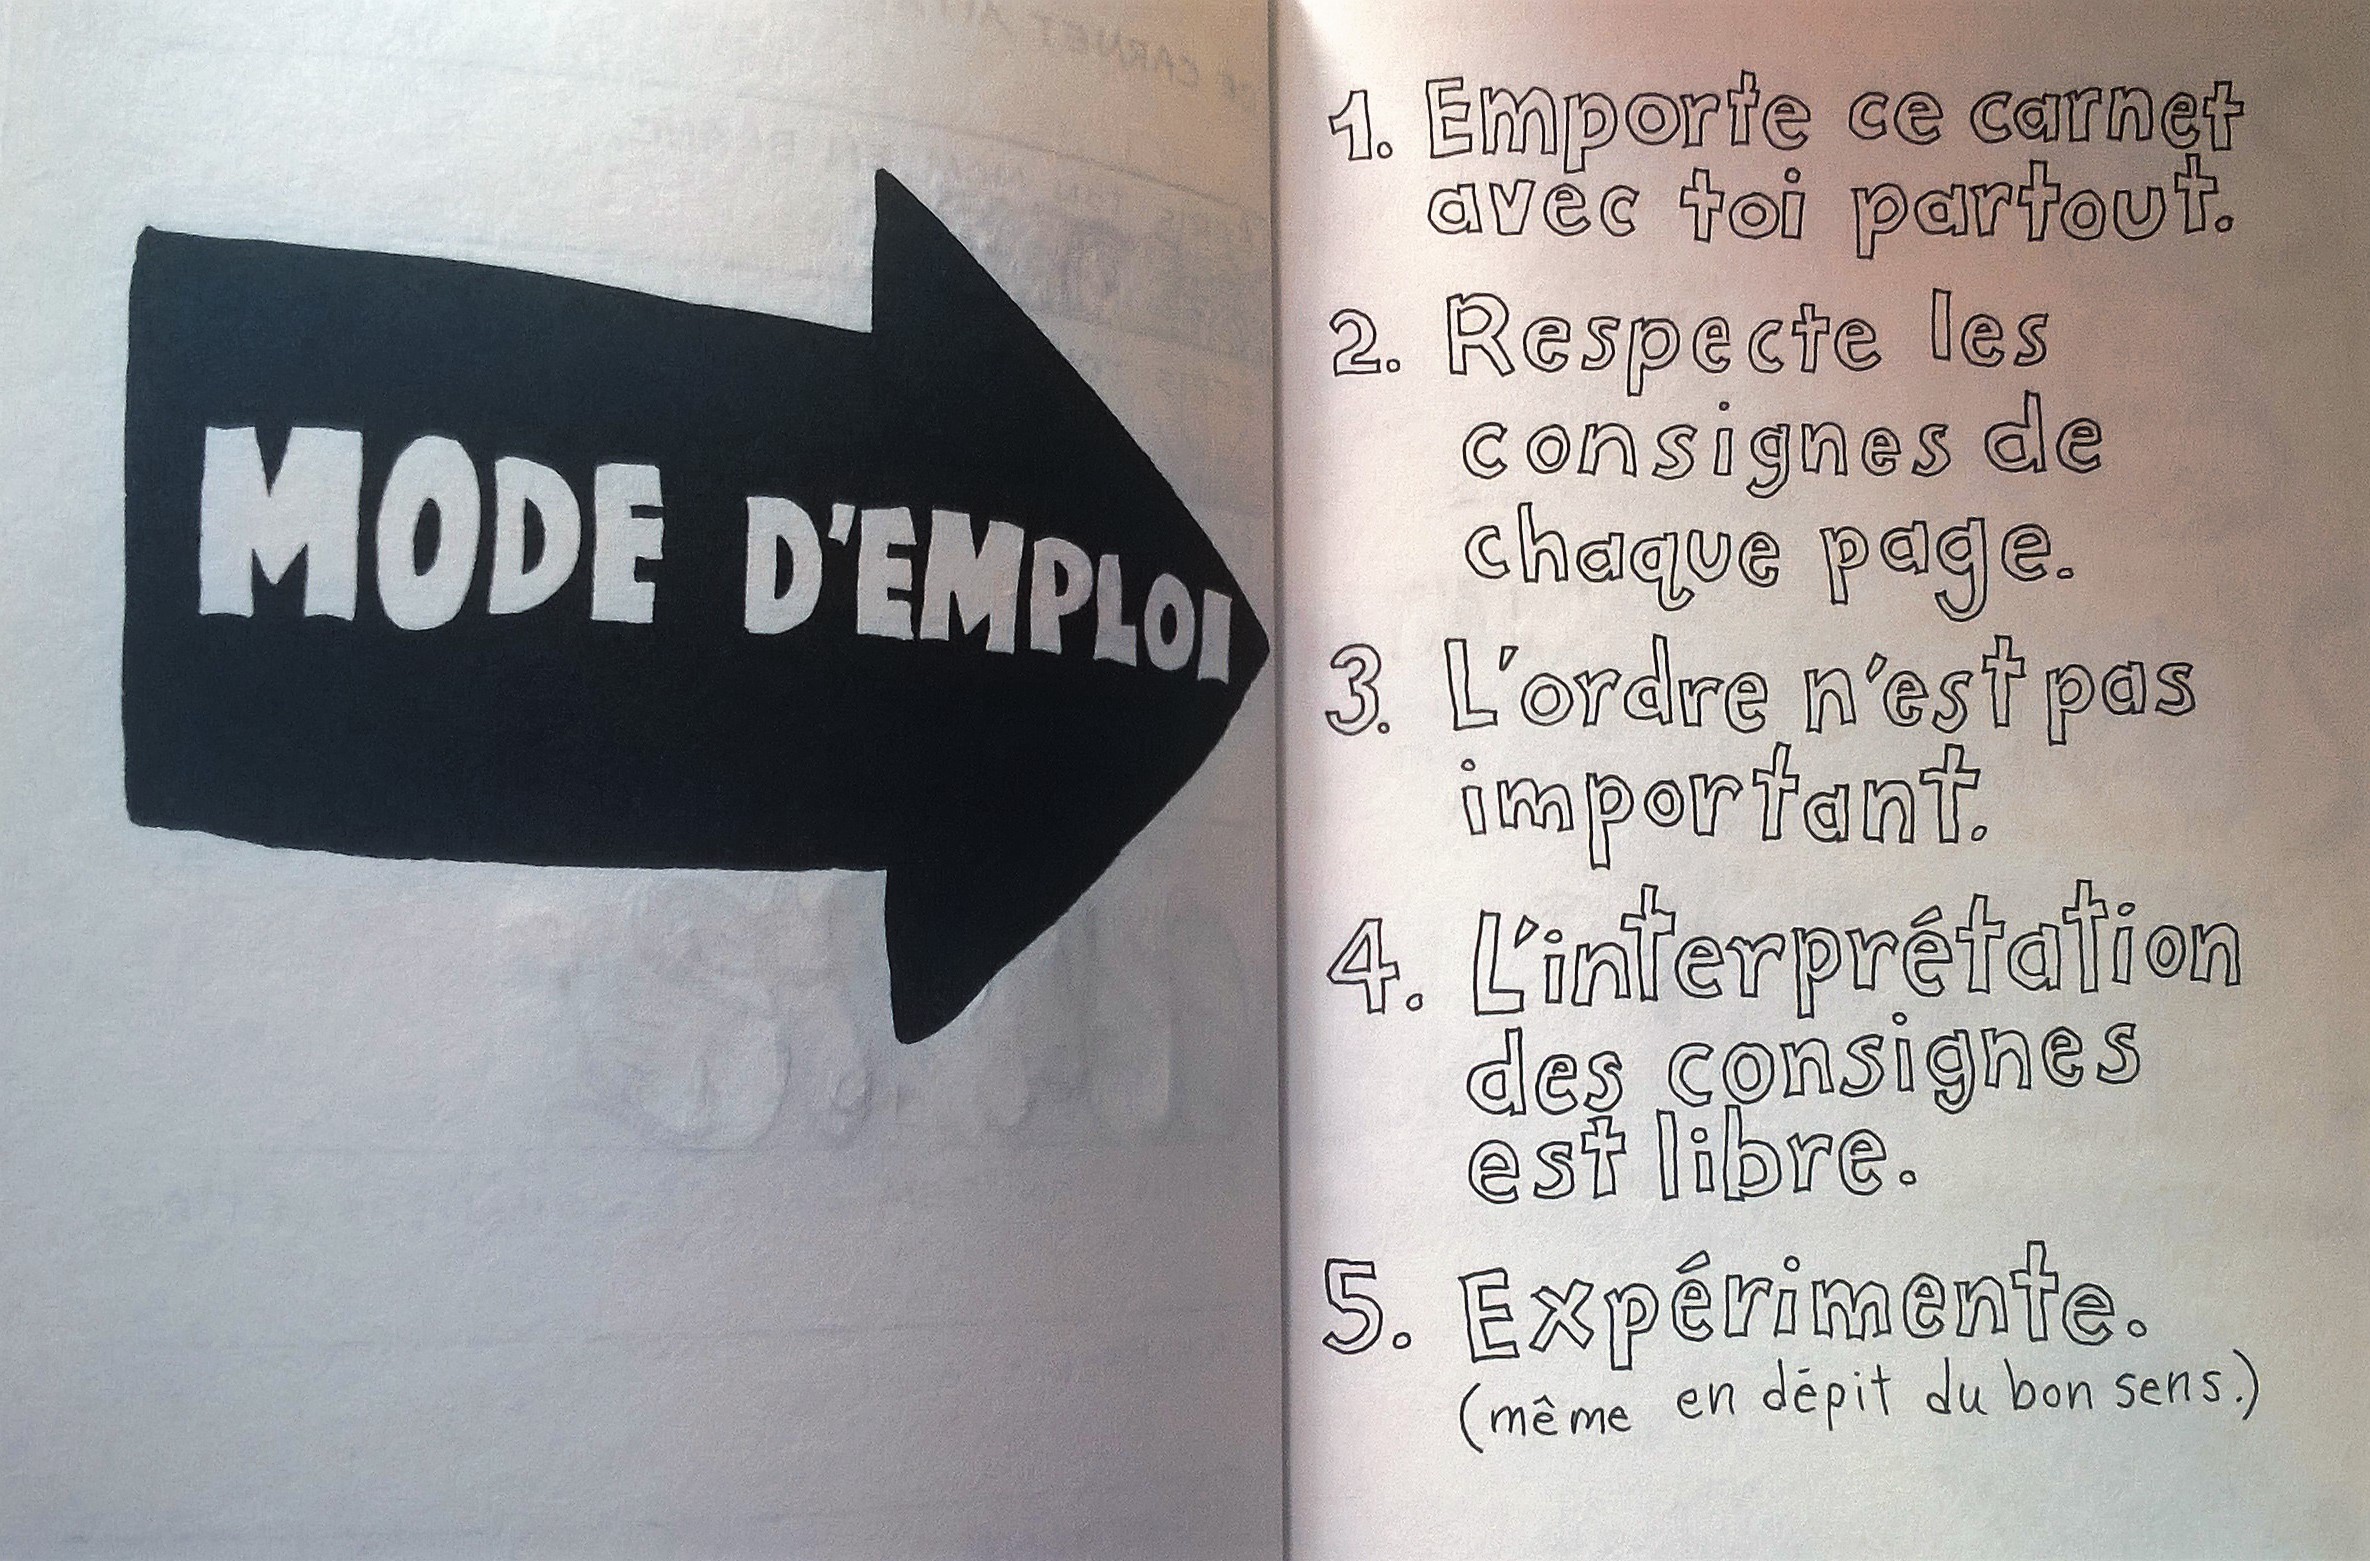 MODE D'EMPLOI
1. Emporte ce carnet
avec toi partout.
2. Respecte les
consignes de
chaque page.
3. L'ordre n'est pas
important.
4. L'interprétation
des consignes
est libre.
5. Expérimente.
(même en dépit du bon sens.)